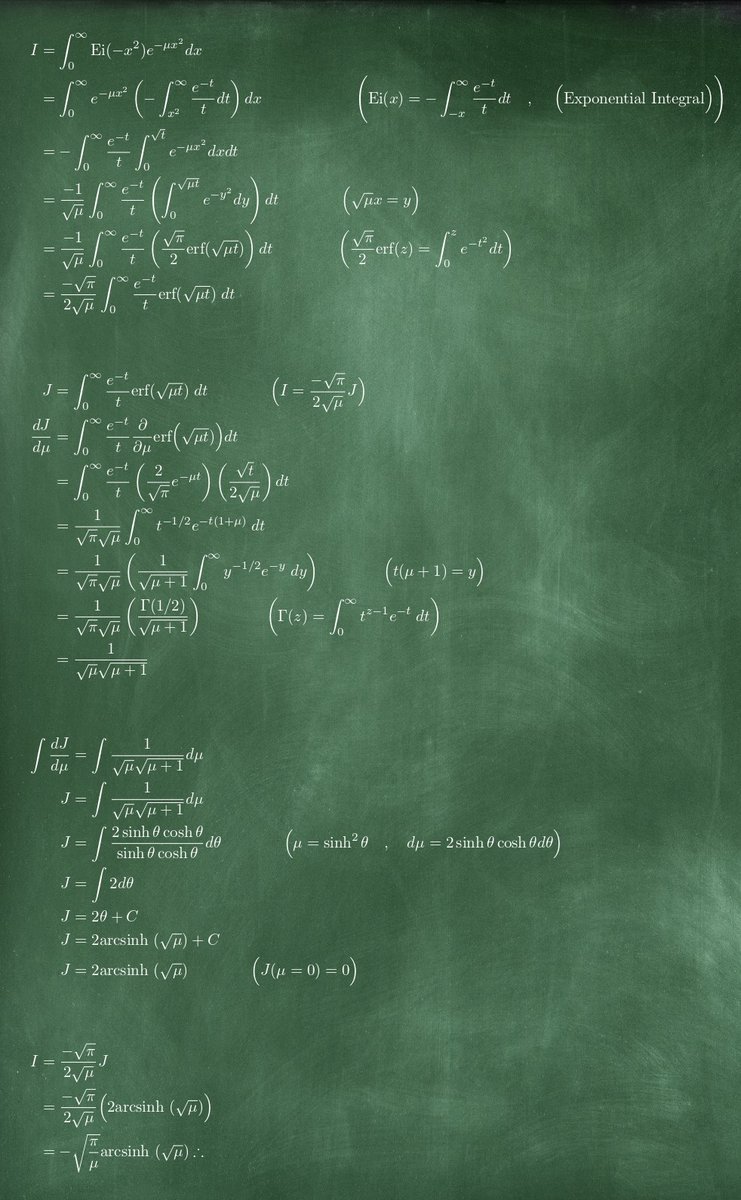 $I = \int_0^\infty \mathrm{Ei}(-x^2) e^{-\mu x^2} dx$
$= \int_0^\infty e^{-\mu x^2} \left( -\int_{x^2}^\infty \frac{e^{-t}}{t} dt \right) dx \qquad \left( \mathrm{Ei}(x) = -\int_{-x}^\infty \frac{e^{-t}}{t} dt \quad , \quad \left( \text{Exponential Integral} \right) \right)$
$= -\int_0^\infty \frac{e^{-t}}{t} \int_0^{\sqrt{t}} e^{-\mu x^2} dx dt$
$= \frac{-1}{\sqrt{\mu}} \int_0^\infty \frac{e^{-t}}{t} \left( \int_0^{\sqrt{\mu t}} e^{-y^2} dy \right) dt \qquad \left( \sqrt{\mu} x = y \right)$
$= \frac{-1}{\sqrt{\mu}} \int_0^\infty \frac{e^{-t}}{t} \left( \frac{\sqrt{\pi}}{2} \mathrm{erf}(\sqrt{\mu t}) \right) dt \qquad \left( \frac{\sqrt{\pi}}{2} \mathrm{erf}(z) = \int_0^z e^{-t^2} dt \right)$
$= \frac{-\sqrt{\pi}}{2\sqrt{\mu}} \int_0^\infty \frac{e^{-t}}{t} \mathrm{erf}(\sqrt{\mu t}) \; dt$
$J = \int_0^\infty \frac{e^{-t}}{t} \mathrm{erf}(\sqrt{\mu t}) \; dt \qquad \left( I = \frac{-\sqrt{\pi}}{2\sqrt{\mu}} J \right)$
$\frac{dJ}{d\mu} = \int_0^\infty \frac{e^{-t}}{t} \frac{\partial}{\partial \mu} \mathrm{erf} \left( \sqrt{\mu t}) \right) dt$
$= \int_0^\infty \frac{e^{-t}}{t} \left( \frac{2}{\sqrt{\pi}} e^{-\mu t} \right) \left( \frac{\sqrt{t}}{2\sqrt{\mu}} \right) dt$
$= \frac{1}{\sqrt{\pi}\sqrt{\mu}} \int_0^\infty t^{-1/2} e^{-t(1+\mu)} \; dt$
$= \frac{1}{\sqrt{\pi}\sqrt{\mu}} \left( \frac{1}{\sqrt{\mu+1}} \int_0^\infty y^{-1/2} e^{-y} \; dy \right) \qquad \left( t(\mu+1) = y \right)$
$= \frac{1}{\sqrt{\pi}\sqrt{\mu}} \left( \frac{\Gamma(1/2)}{\sqrt{\mu+1}} \right) \qquad \left( \Gamma(z) = \int_0^\infty t^{z-1} e^{-t} \; dt \right)$
$= \frac{1}{\sqrt{\mu}\sqrt{\mu+1}}$
$\int \frac{dJ}{d\mu} = \int \frac{1}{\sqrt{\mu}\sqrt{\mu+1}} d\mu$
$J = \int \frac{1}{\sqrt{\mu}\sqrt{\mu+1}} d\mu$
$J = \int \frac{2 \sinh\theta \cosh\theta}{\sinh\theta \cosh\theta} d\theta \qquad \left( \mu = \sinh^2\theta \quad , \quad d\mu = 2 \sinh\theta \cosh\theta d\theta \right)$
$J = \int 2 d\theta$
$J = 2\theta + C$
$J = 2\mathrm{arcsinh} \; (\sqrt{\mu}) + C$
$J = 2\mathrm{arcsinh} \; (\sqrt{\mu}) \qquad \left( J(\mu = 0) = 0 \right)$
$I = \frac{-\sqrt{\pi}}{2\sqrt{\mu}} J$
$= \frac{-\sqrt{\pi}}{2\sqrt{\mu}} \left( 2\mathrm{arcsinh} \; (\sqrt{\mu}) \right)$
$= -\sqrt{\frac{\pi}{\mu}} \mathrm{arcsinh} \; (\sqrt{\mu}) \therefore$